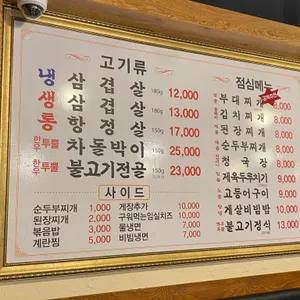 고기류
냉 삼겹살 180g 12,000
생 삼겹살 180g 13,000
통 항정살 150g 17,000
한우투뿔 차돌박이 150g 25,000
한우투뿔 불고기전골 150g 23,000
사이드
순두부찌개 1,000
된장찌개 2,000
볶음밥 3,000
계란찜 5,000
게장추가 10,000
구워먹는임실치즈 10,000
물냉면 7,000
비빔냉면 7,000
점심메뉴
부대찌개 8,000
김치찌개 8,000
된장찌개 8,000
순두부찌개 8,000
청국장 8,000
제육두루치기 9,000
고등어구이 9,000
게살비빔밥 10,000
불고기정식 13,000